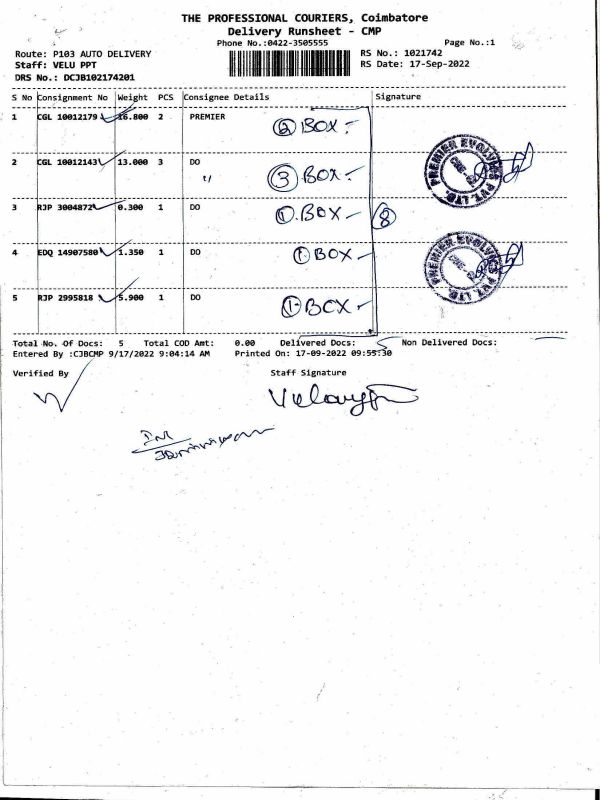 THE PROFESSIONAL COURIERS, Coimbatore
Delivery Runsheet - CMP
Phone No.:0422-3505555 Page No.:1
Route: P103 AUTO DELIVERY RS No.: 1021742
Staff: VELU PPT RS Date: 17-Sep-2022
DRS No.: DCJB102174201
S No Consignment No Weight PCS Consignee Details Signature
1 CGL 10012179 16.800 2 PREMIER ② BOX -
2 CGL 10012143 13.000 3 DO ③ BOX -
3 RJP 3004872 0.300 1 DO ① BOX - ⑧
4 EDQ 14907580 1.350 1 DO ① BOX -
5 RJP 2995818 5.900 1 DO ① BOX -
PREMIER EVOLVICS PVT. LTD.
PREMIER EVOLVICS PVT. LTD.
Total No. Of Docs: 5 Total COD Amt: 0.00 Delivered Docs: 5 Non Delivered Docs:
Entered By :CJBCMP 9/17/2022 9:04:14 AM Printed On: 17-09-2022 09:55:30
Verified By Staff Signature